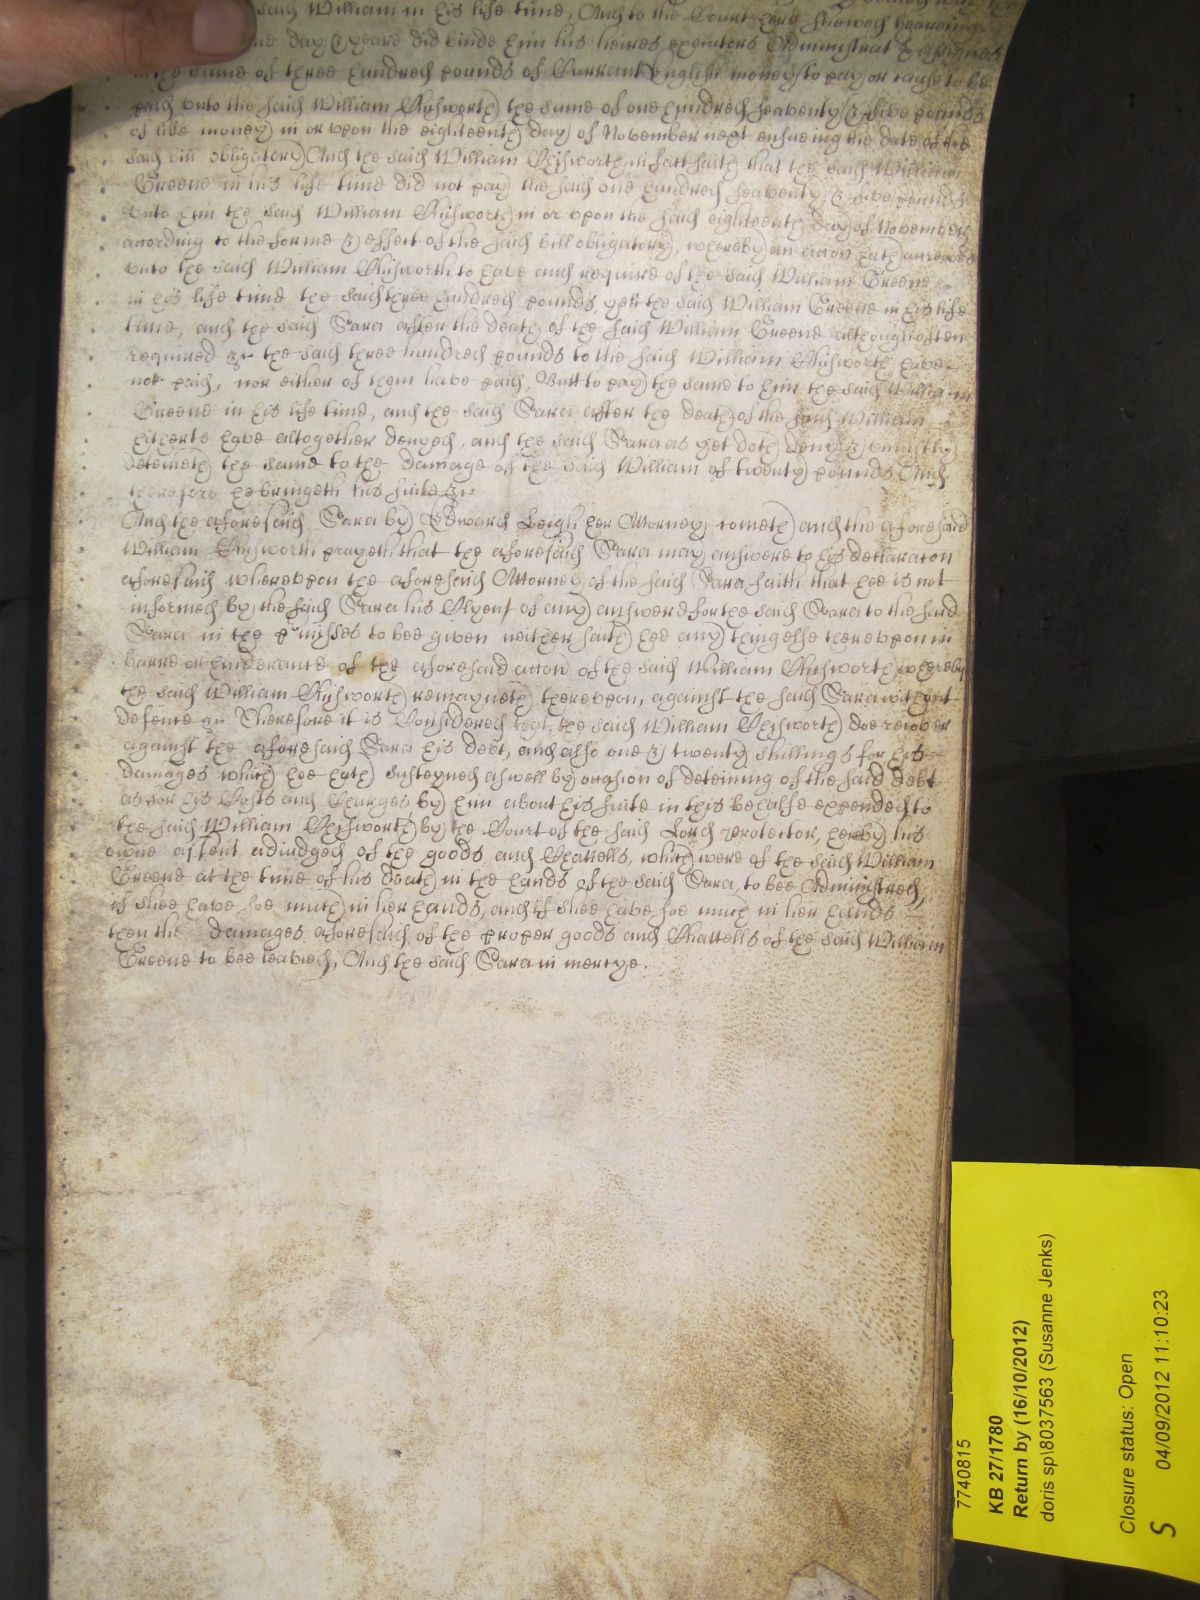 said William in his life time, And to the Court here shewed beareinge
day & yeare did binde him his heires executors Administrat & assignes
in the summe of three hundred pounds of Currant English money to pay or cause to be
paid unto the said William Rishworth the sume of one hundred seaventy & five pounds
of like money in or upon the eighteenth day of November next ensueing the date of the
said bill obligatory And the said William Rishworth in fact saith that the said William
Greene in his life time did not pay the said one hundred seaventy & five pounds
unto him the said William Rishworth in or upon the said eighteenth day of November
according to the forme & effect of the said bill obligatory, whereby an accon hath accrewed
unto the said William Rishworth to have and require of the said William Greene
in his life time the said three hundred pounds, yett the said William Greene in his life
time, and the said Sara after the death of the said William Greene although often
required &c the said three hundred pounds to the said William Rishworth have
not paid, nor either of them have paid, Butt to pay the same to him the said William
Greene in his life time, and the said Sara after the death of the said William
hitherto have altogether denyed, and the said Sara as yet doth deny & uniustly
deteineth the same to the damage of the said William of twenty pounds And
therefore he bringeth his suite &c
And the aforesaid Sara by Edward Leigh her Attorney cometh and the aforesaid
William Rishworth prayeth that the aforesaid Sara may answere to his declaracon
aforesaid whereupon the aforesaid Attorney of the said Sara saith that hee is not
informed by the said Sara his Clyent of any answere for the said Sara to the said
Sara in the p'misses to bee given neither saith hee any thing else thereupon in
barre or hinderance of the aforesaid accon of the said William Rishworth whereby
the said William Rishworth remayneth thereupon, against the said Sara without
defence &c Therefore it is Considered that the said William Rishworth doe recover
against the aforesaid Sara his debt, and also one & twenty shillings for his
damages which hee hath susteyned aswell by occasion of deteining of the said debt
as for his Costs and Charges by him about his suite in this behalfe expended to
the said William Rishworth by the Court of the said Lord Protector, hereby his
owne assent adiudged of the goods and Chattells, which were of the said William
Greene at the time of his death in the hands of the said Sara, to bee Administred,
if shee have soe much in her hands, and if shee have soe much in her hands
then the damages aforesaid of the proper goods and Chattells of the said William
Greene to bee leavied, And the said Sara in mercye.
7740815
KB 27/1780
Return by (16/10/2012)
doris sp\8037563 (Susanne Jenks)
Closure status: Open
04/09/2012 11:10:23
S